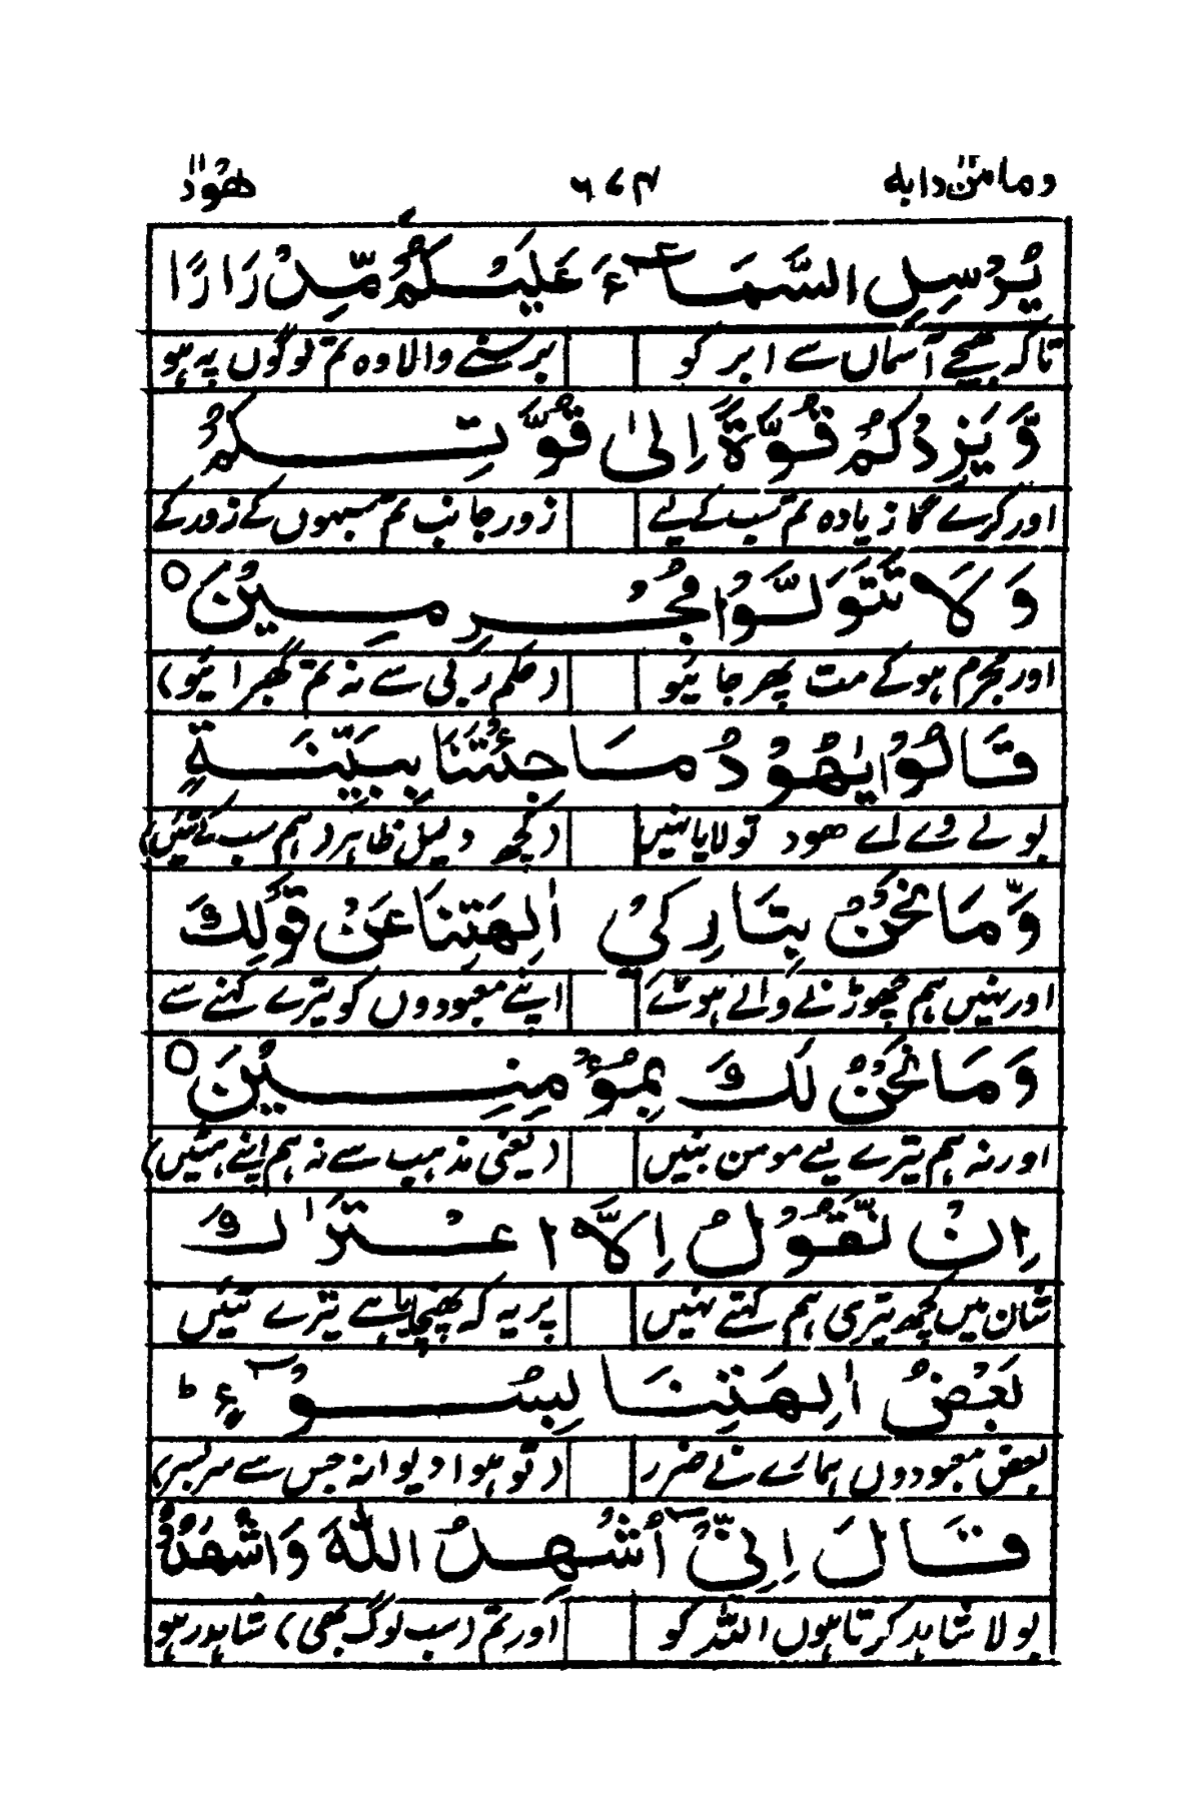 ومامن دابه ۶۷۴ ھود
يُرْسِلِ السَّمَآءَ عَلَيْكُمْ مِّدْرَارًا
تاکہ بھیجے آسماں سے ابر کو برسنے والا وہ تم لوگوں پہ ہو
وَّيَزِدْكُمْ قُوَّةً اِلٰى قُوَّتِكُمْ
اور کرے گا زیادہ تم سب کے لیے زور جانب تم سبہوں کے زور کے
وَلَا تَتَوَلَّوْا مُجْرِمِيْنَ ○
اور مجرم ہو کے مت پھر جائیو (حکم ربی سے نہ تم گھبرائیو)
قَالُوْا يٰهُوْدُ مَا جِئْتَنَا بِبَيِّنَةٍ
بولے وے اے ھود تو لایا نہیں (کچھ دلیل ظاہر (ہم سب کے تئیں)
وَّمَا نَحْنُ بِتَارِكِيْ اٰلِهَتِنَا عَنْ قَوْلِكَ
اور نہیں ہم چھوڑنے والے ہوئے اپنے معبودوں کو تیرے کہنے سے
وَمَا نَحْنُ لَكَ بِمُؤْمِنِيْنَ ○
اور نہ ہم تیرے لیے مومن بنیں (یعنی مذہب سے نہ ہم اپنے ہٹیں)
اِنْ نَّقُوْلُ اِلَّا اعْتَرٰىكَ
شان میں کچھ تیری ہم کہتے نہیں پر یہ کہ پہنچایا ہے تیرے تئیں
بَعْضُ اٰلِهَتِنَا بِسُوْٓءٍ ط
بعض معبودوں ہمارے نے ضرر (تو ہوا دیوانہ جس سے سربسر)
قَالَ اِنِّيْٓ اُشْهِدُ اللّٰهَ وَاشْهَدُوْٓا
بولا شاہد کرتا ہوں اللہ کو اور تم (سب لوگ بھی) شاہد رہو